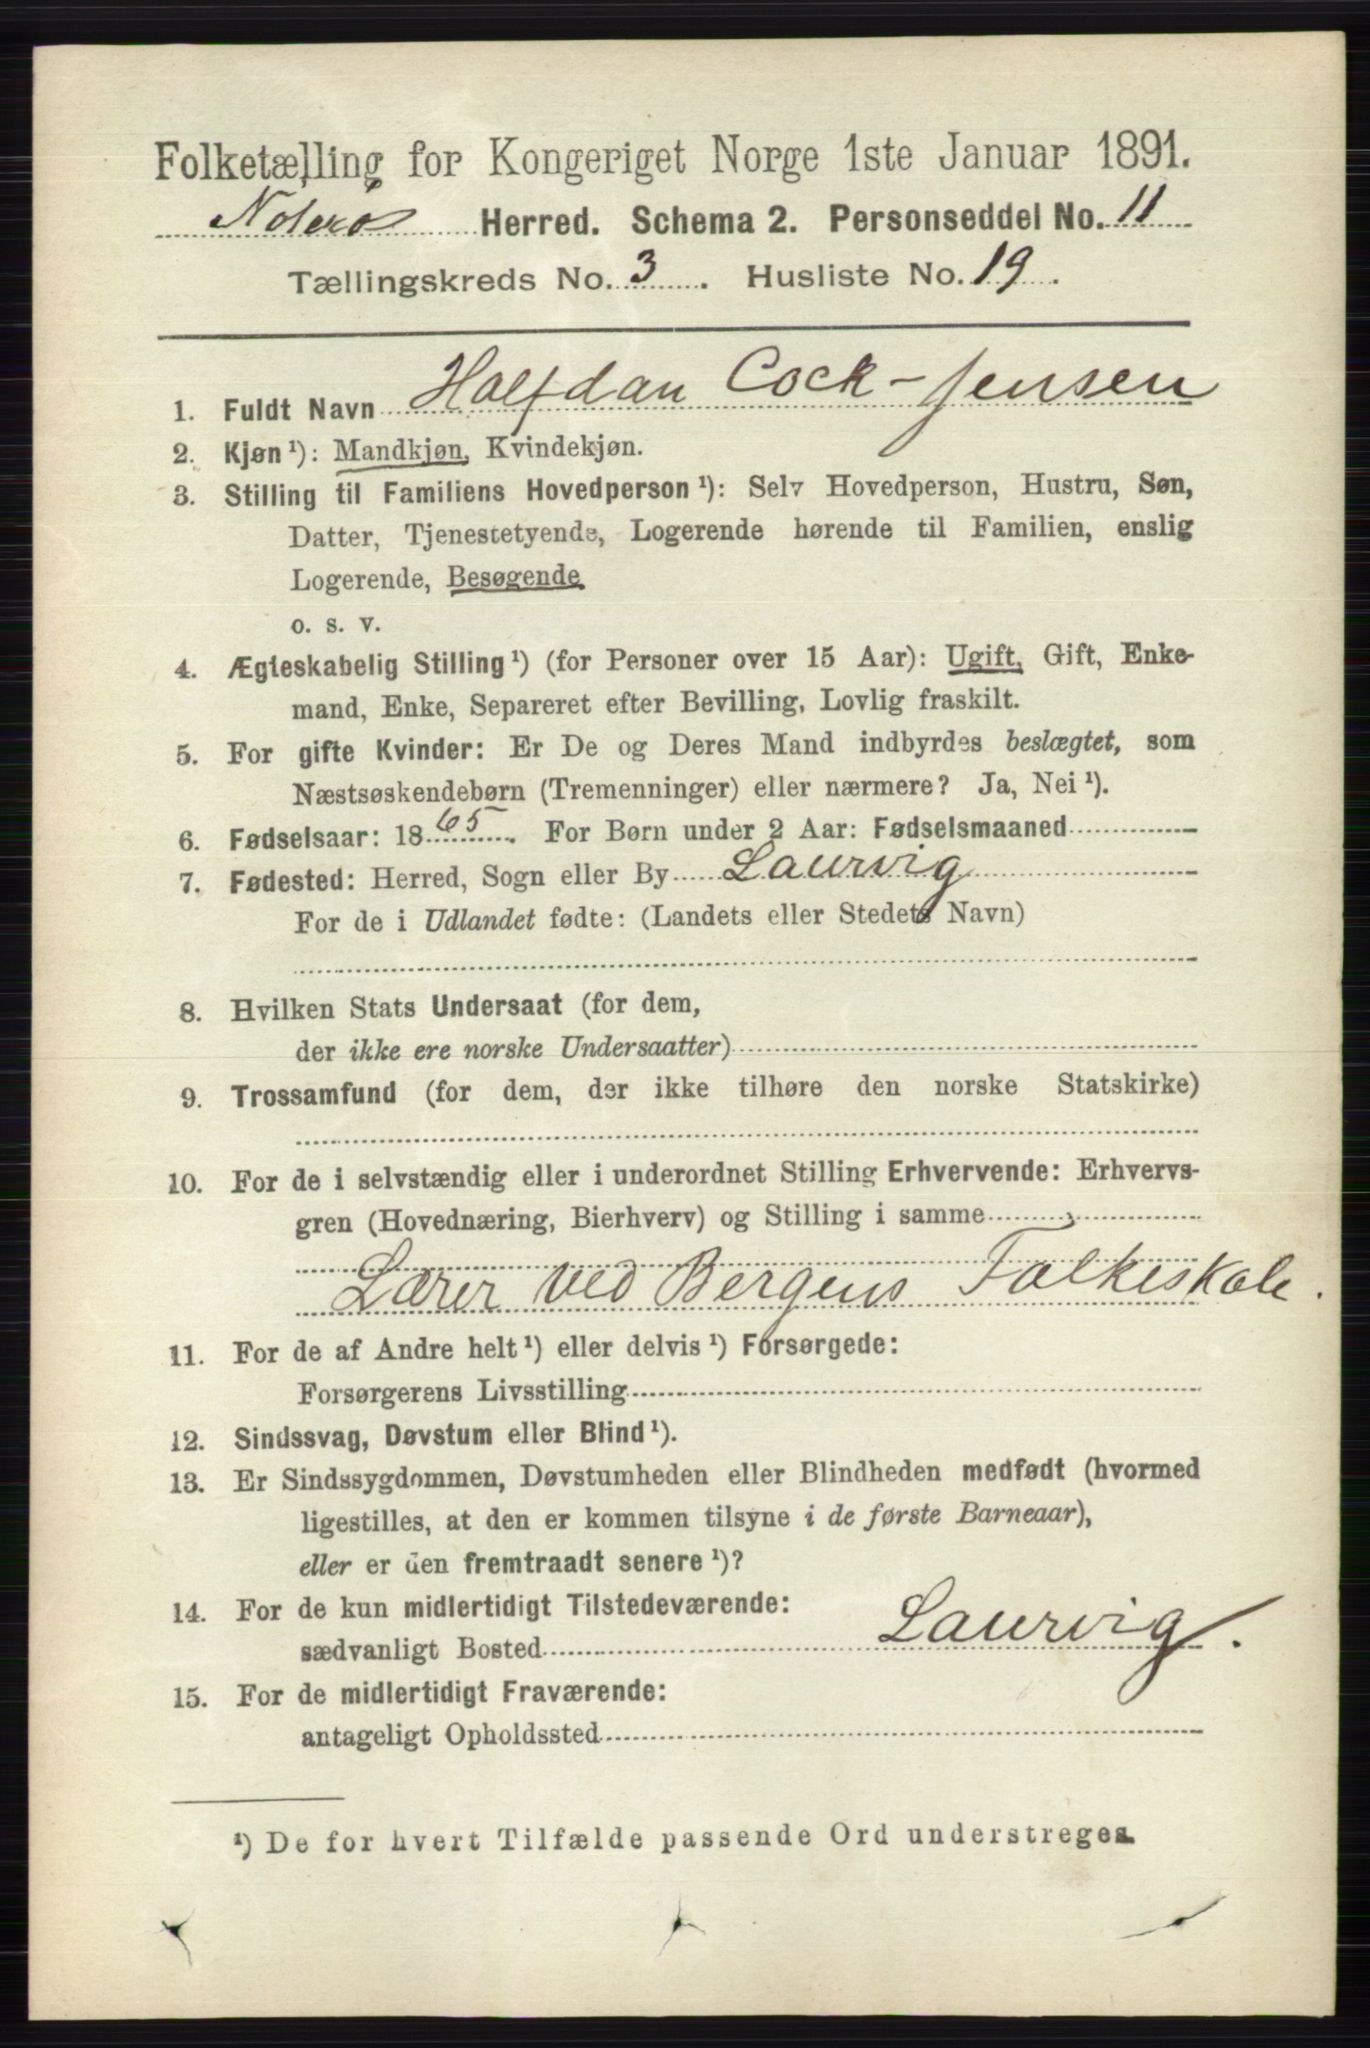 Folketælling for Kongeriget Norge 1ste Januar 1891.
Noterø Herred. Schema 2. Personseddel No. 11
Tællingskreds No. 3. Husliste No. 19.
1. Fuldt Navn Halfdan Cock-Jensen
2. Kjøn ¹): Mandkjøn, Kvindekjøn.
3. Stilling til Familiens Hovedperson ¹): Selv Hovedperson, Hustru, Søn,
Datter, Tjenestetyende, Logerende hørende til Familien, enslig
Logerende, Besøgende
o. s. v.
4. Ægteskabelig Stilling ¹) (for Personer over 15 Aar): Ugift, Gift, Enke-
mand, Enke, Separeret efter Bevilling, Lovlig fraskilt.
5. For gifte Kvinder: Er De og Deres Mand indbyrdes beslægtet, som
Næstsøskendebørn (Tremenninger) eller nærmere? Ja, Nei ¹).
6. Fødselsaar: 1865. For Børn under 2 Aar: Fødselsmaaned
7. Fødested: Herred, Sogn eller By Laurvig
For de i Udlandet fødte: (Landets eller Stedets Navn)
8. Hvilken Stats Undersaat (for dem,
der ikke ere norske Undersaatter)
9. Trossamfund (for dem, der ikke tilhøre den norske Statskirke)
10. For de i selvstændig eller i underordnet Stilling Erhvervende: Erhvervs-
gren (Hovednæring, Bierhverv) og Stilling i samme
Lærer ved Bergens Folkeskole.
11. For de af Andre helt ¹) eller delvis ¹) Forsørgede:
Forsørgerens Livsstilling
12. Sindssvag, Døvstum eller Blind ¹).
13. Er Sindssygdommen, Døvstumheden eller Blindheden medfødt (hvormed
ligestilles, at den er kommen tilsyne i de første Barneaar),
eller er den fremtraadt senere ¹)?
14. For de kun midlertidigt Tilstedeværende:
sædvanligt Bosted Laurvig.
15. For de midlertidigt Fraværende:
antageligt Opholdssted
¹) De for hvert Tilfælde passende Ord understreges.